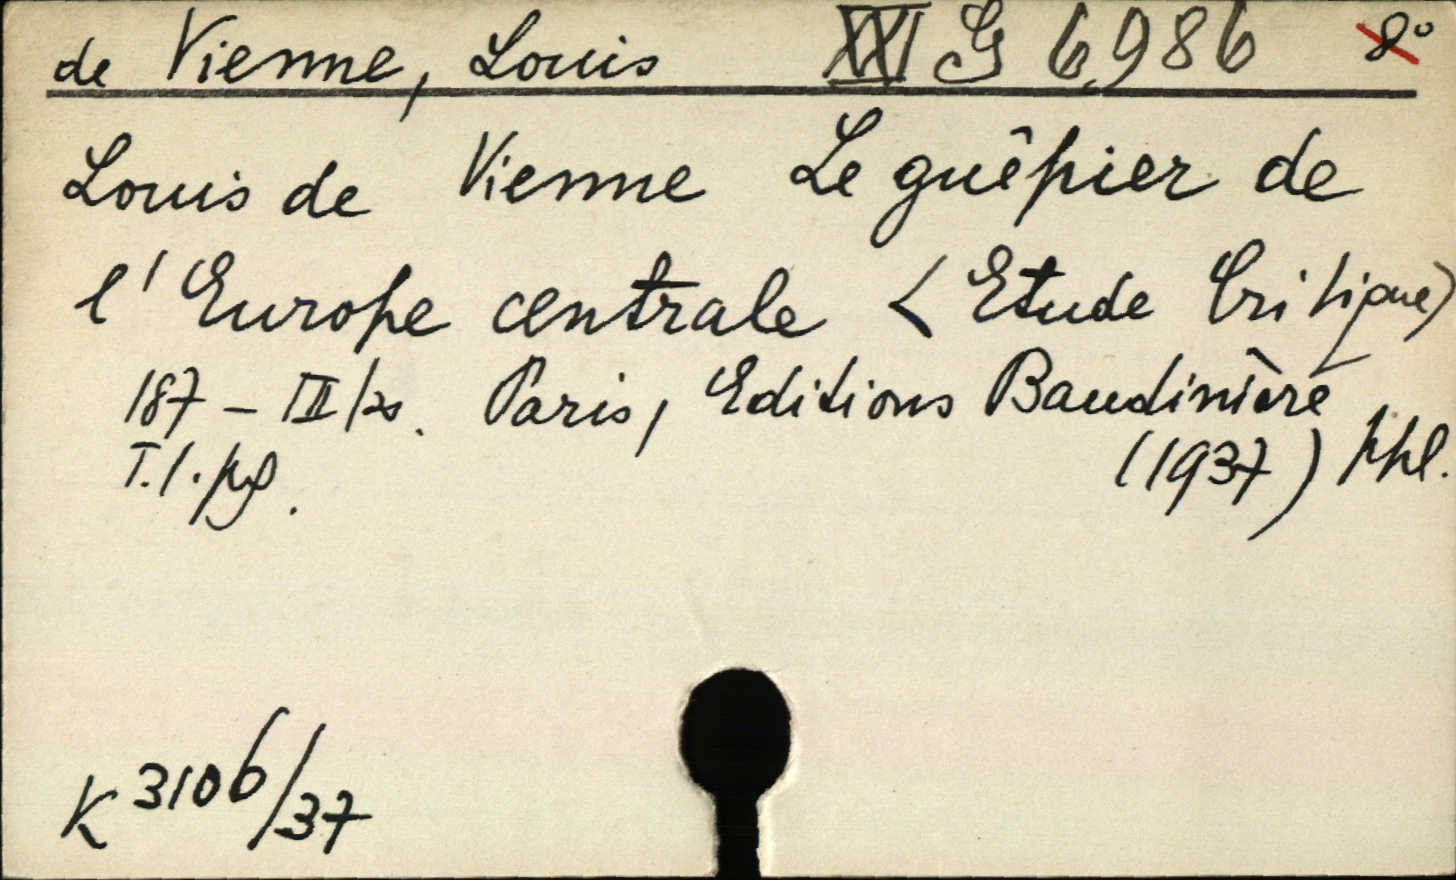 de Vienne, Louis XVI G 6,986 8°
Louis de Vienne Le guêpier de
l'Europe centrale (Etude Critique)
187 - III /2s. Paris, Editions Baudinière
T.1. pg. (1937) ppl.
K 3106/37